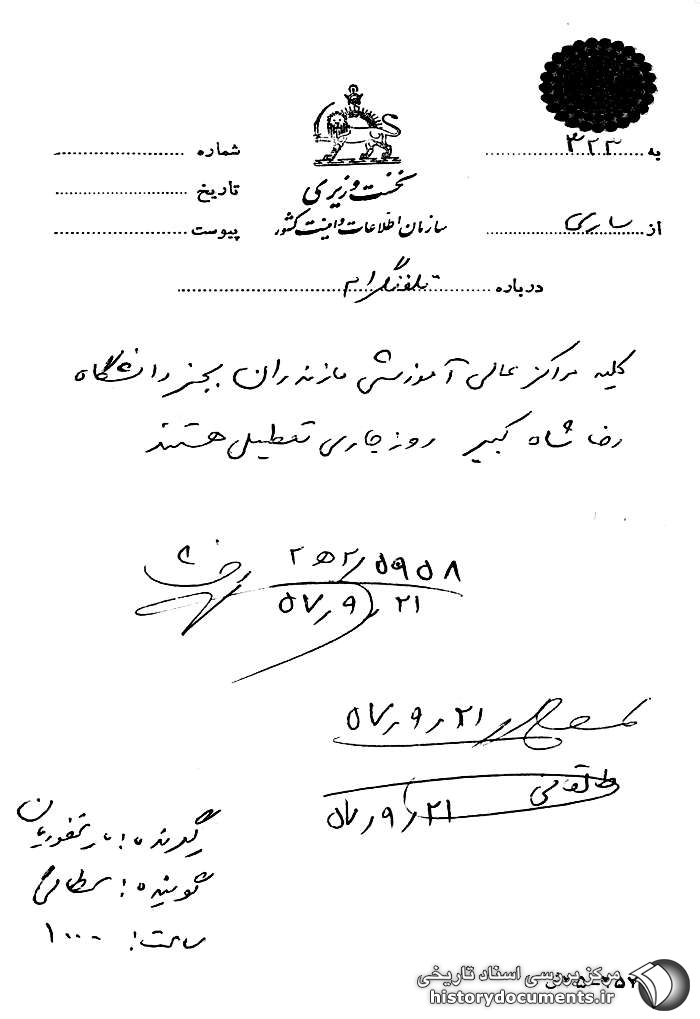 به ۳۲۳
شماره
نخست وزیری
تاریخ
از ساری
سازمان اطلاعات و امنیت کشور
پیوست
درباره تلفنگرام
کلیه مراکز عالی آموزشی مازندران بجز دانشگاه
رضا شاه کبیر روز جاری تعطیل هستند
۲ ه ۲/۵۹۵۸
۵۷٫۹٫۲۱
۵۷٫۹٫۲۱
طالقانی
۵۷٫۹٫۲۱
گیرنده:
گوینده:
ساعت: ۱۰۰۰
مرکز بررسی اسناد تاریخی
historydocuments.ir